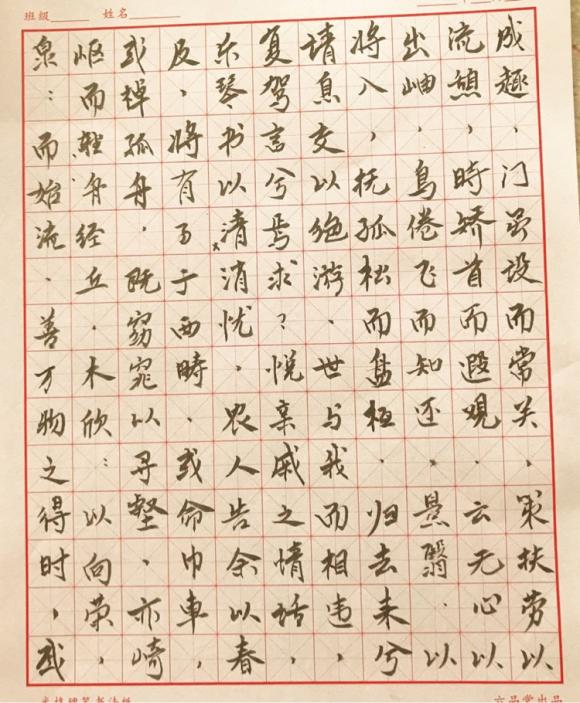 班級 姓名
成趣，门虽设而常关，策扶劳以
流憩，時矫首而遐观．云无心以
出岫，鸟倦飞而知还．景翳．以
将入，抚孤松而盘桓．归去来兮
请息交以绝游．世与我而相违，
复驾言兮焉求？悦亲戚之情话，
乐琴书以清消忧．农人告余以春
及，将有事于西畴．或命巾車，
或棹孤舟．既窈窕以寻壑、亦崎
岖而舟经丘．木欣：以向荣，
泉：而始流．善万物之得时，感
六品堂出品